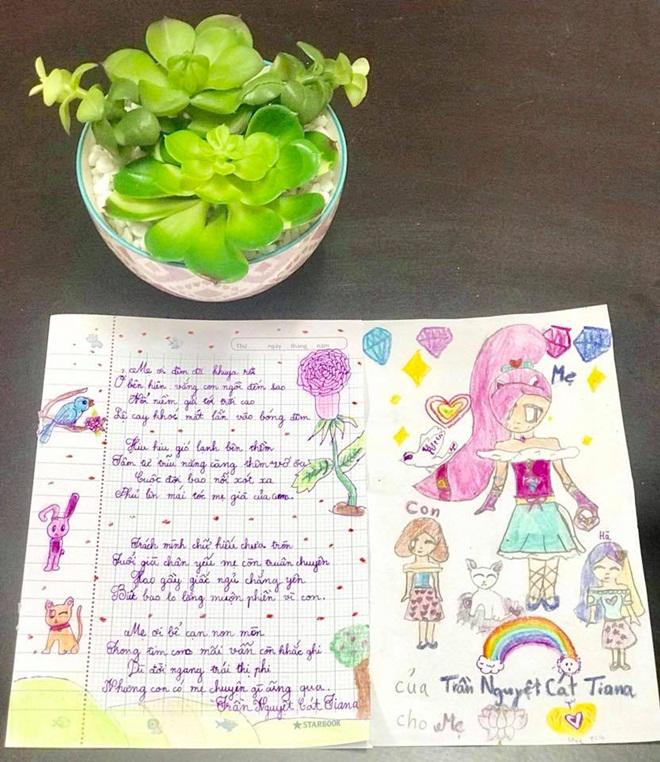 Thứ ngày tháng năm
Mẹ ơi đêm đã khuya rồi
Ở bên hiên vắng con ngồi đếm sao
Nỗi niềm gửi tới trời cao
Lệ cay khóe mắt lăn vào bóng đêm
Hiu hiu gió lạnh bên thềm
Tâm tư trĩu nặng càng thêm vỡ òa
Cuộc đời bao nỗi xót xa
Phủ lên mái tóc mẹ già của con.
Trách mình chữ hiếu chưa tròn
Tuổi già chân yếu mẹ còn truân chuyên
Hao gầy giấc ngủ chẳng yên
Biết bao lo lắng muộn phiền vì con.
Mẹ ơi bể cạn non mòn
Trong tim con mãi vẫn còn khắc ghi
Dù đời ngang trái thị phi
Nhưng con có mẹ chuyện gì cũng qua...
Trần Nguyệt Cát Tiana
STARBOOK
Mẹ
Con
Hã
của Trần Nguyệt Cát Tiana
cho Mẹ